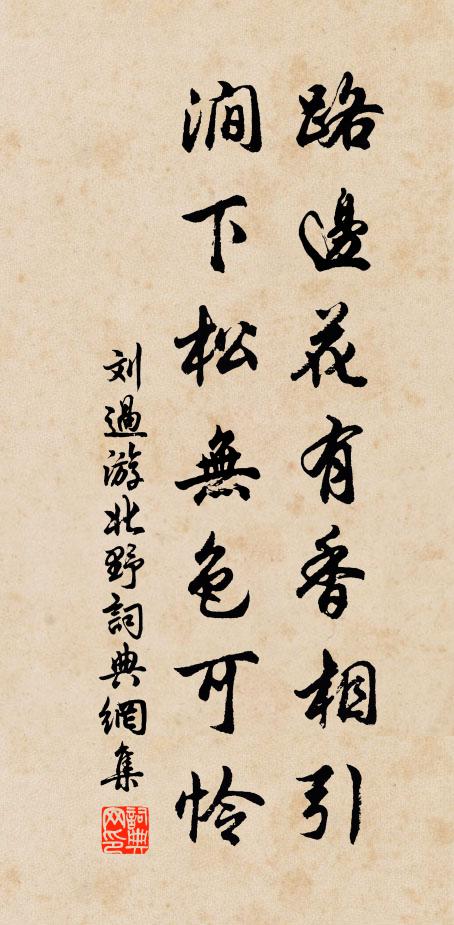 路邊花有香相引
澗下松無色可怜
刘過游北野詞典網集
詞典网印